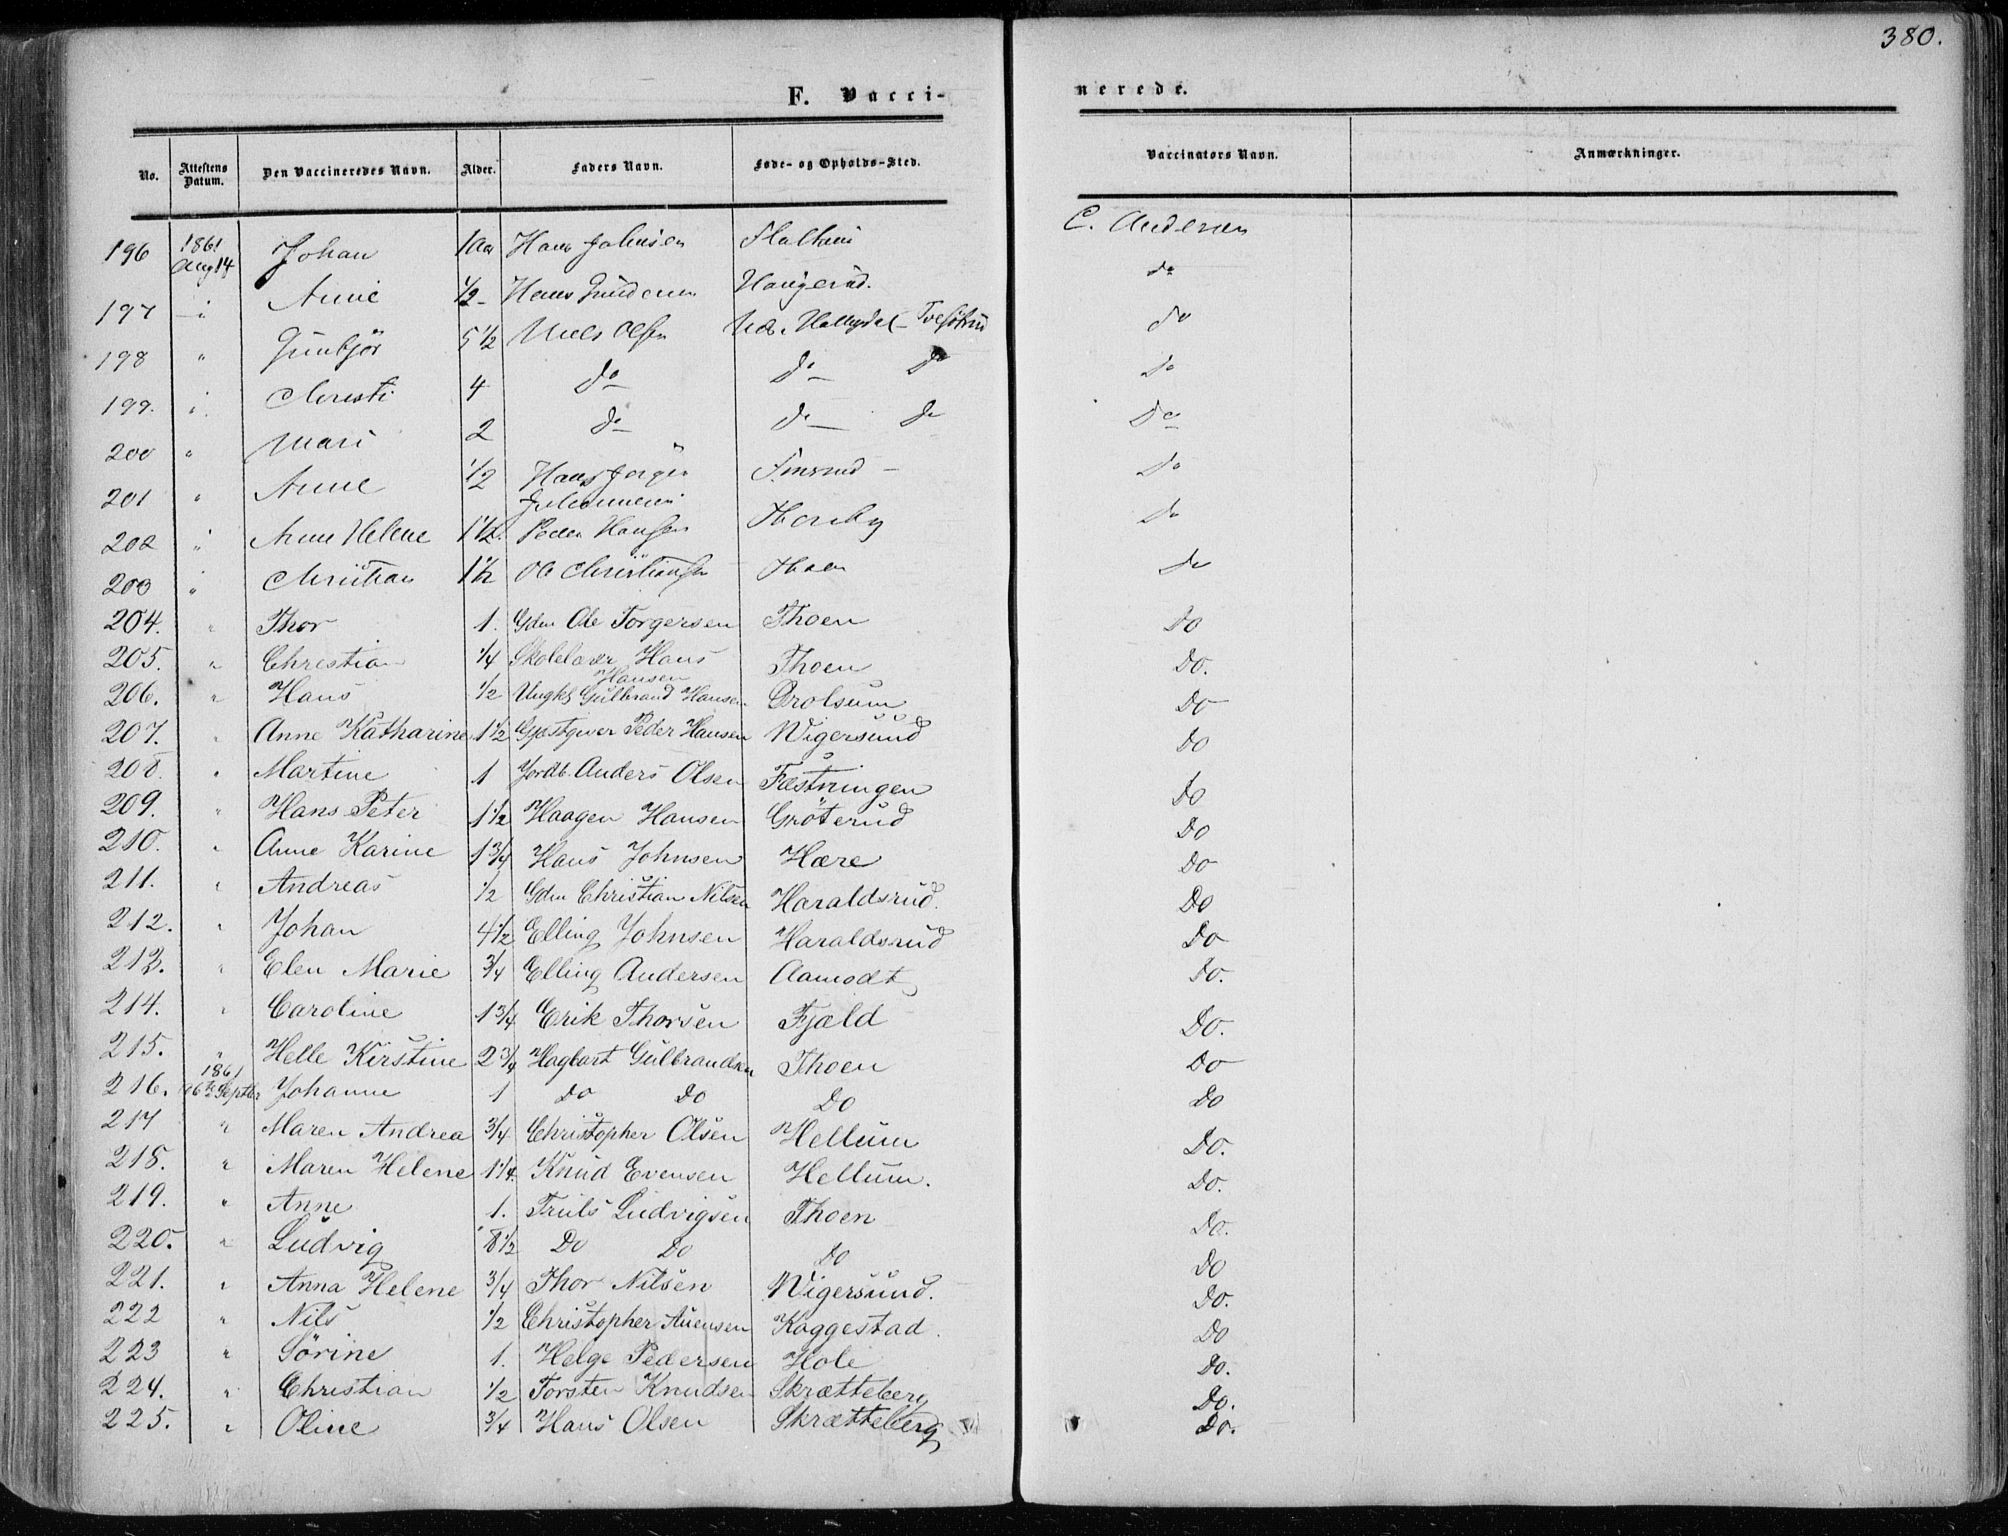 380.
F. Vacci-
nerede.
No. Attestens Datum. Den Vaccineredes Navn. Alder. Faders Navn. Føde- og Opholds-Sted. Vaccinators Navn. Anmærkninger.
196 1861 Aug 14 Johan 1 Aar Hans Johnsen C. Andersen
197 " Anne 1/2 Hans Haugerud. do
198 " Gunbjör 5 1/2 Niels Olsen do
199. " Christi 4 do do do do
200 " Mari 2 do do do do
201 " Anne 1/2 Hans Jørgen do
202 " Anne Helene 1 1/2. Peder Hansen do
203 " Christian 1 1/2 Ole Christiansen Thoen do
204. " Thor 1. Gdm Ole Torgersen Thoen Do
205. " Christian 1/4 Skolelærer Hans Hansen Thoen Do.
206. " Hans 1/2 Ungkl Gulbrand Hansen Drolsum Do
207. " Anne Katharine 1 1/2 Gjæstgiver Peder Hansen Wigersund Do
208. " Martine 1 Jordb. Anders Olsen Fæstningen Do
209. " Hans Peter 1 1/2 Haagen Hansen Gröterud Do
210. " Anne Karine 1 3/4 Hans Johnsen Hære Do
211. " Andreas 1/2 Gdm Christian Nilsen Haraldsrud. Do
212. " Johan 4 1/2 Elling Johnsen Haraldsrud Do
213. " Elen Marie 3/4 Elling Andersen Aamodt Do.
214. " Caroline 1 3/4 Erik Thorsen Fjæld Do.
215. " Helle Kirstine 2 3/4 Hagbart Gulbrandsen Thoen Do
216. 1861 Septbr Johanne 1 Do Do Do Do
217 " Maren Andrea 3/4 Christopher Olsen Hellum Do.
218. " Maren Helene 1 1/4. Knud Evensen Hellum. Do.
219. " Anne 1. Truls Ludvigsen Thoen Do.
220. " Ludvig 8 1/2 Do Do Do Do
221. " Anna Helene 3/4 Thor Nilsen Wigersund. Do.
222 " Nils 1/2 Christopher Auensen Koggestad. Do
223 " Sörine 1. Helge Pedersen Hole Do.
224. " Christian 1/2 Torsten Knudsen Skrætteberg Do.
225. " Oline 3/4 Hans Olsen Skrætteberg Do.